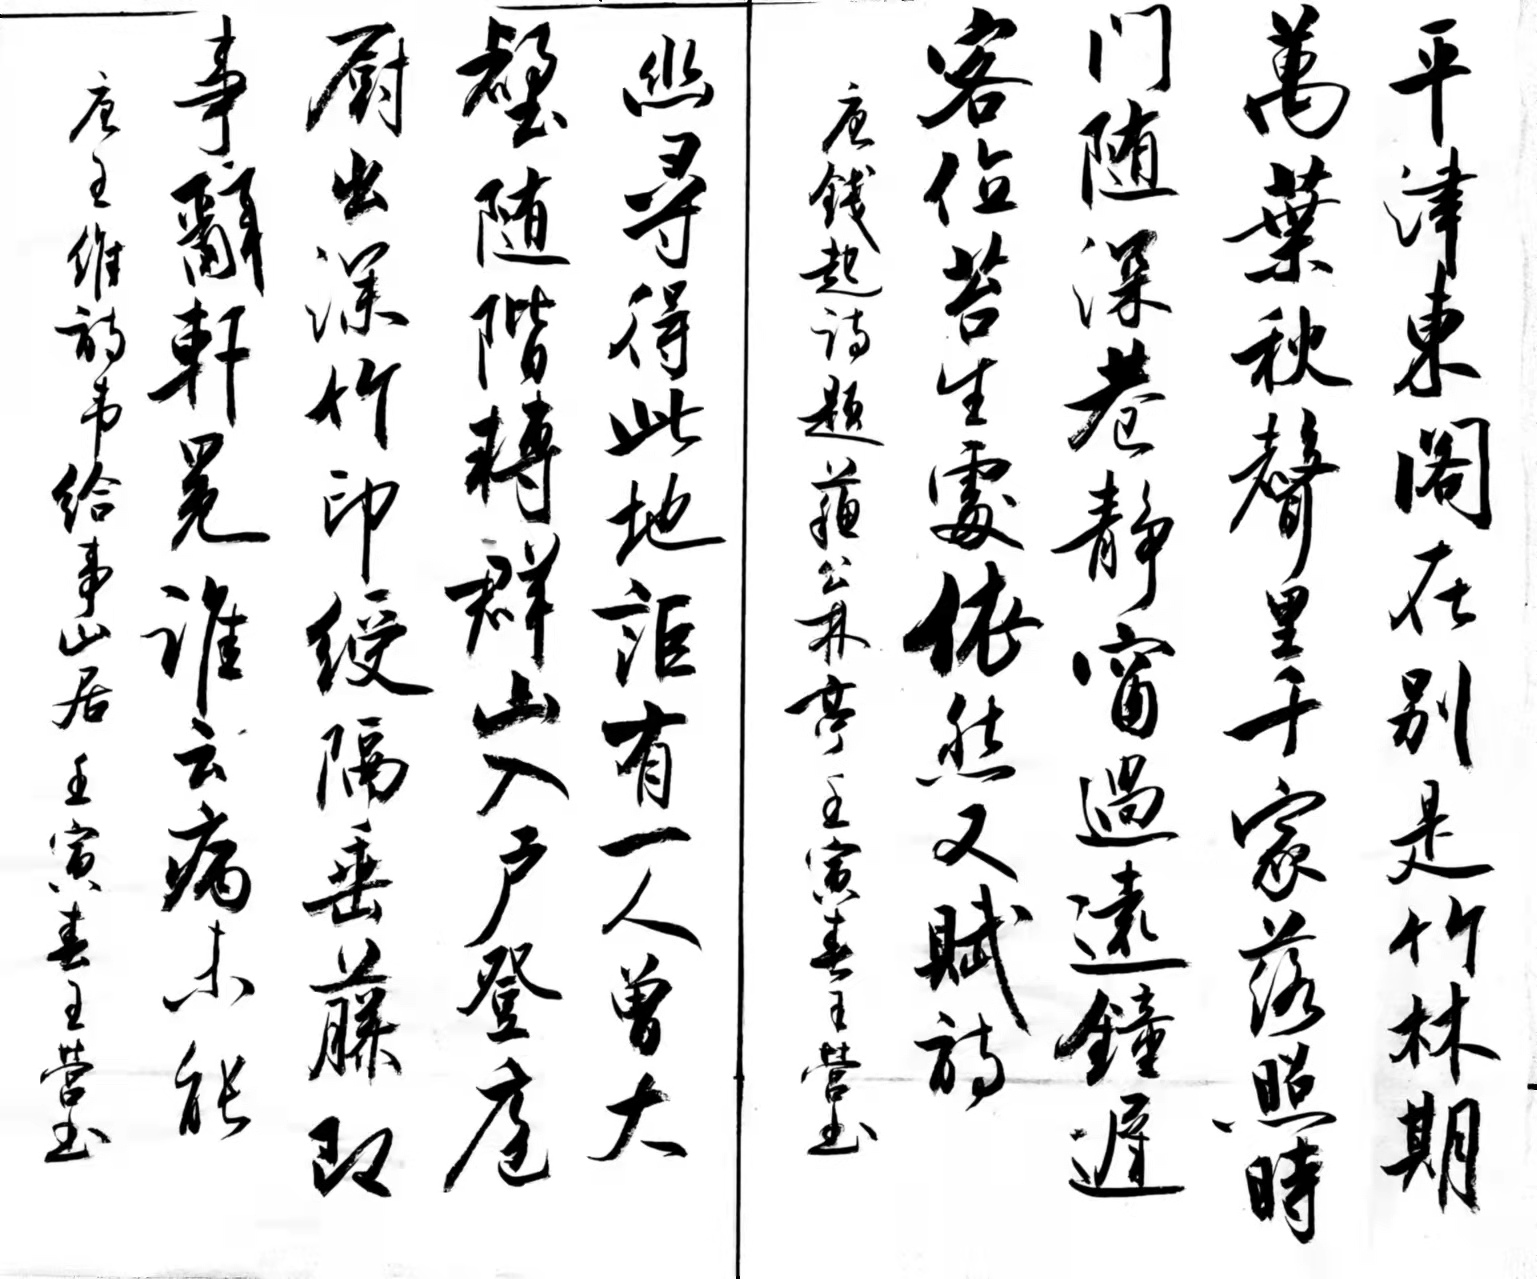 平津東閣在别是竹林期
萬葉秋聲里千家落照時
门随深巷静窗過遠鐘遲
客位苔生處依然又賦詩
唐錢起诗題蘇公林亭王寅春王营玉
幽尋得此地詎有一人曾大
壑随階轉群山入户登庖
厨出深竹印绶隔垂藤即
事辭軒冕誰云病未能
唐王维詩韦给事山居壬寅春王营玉